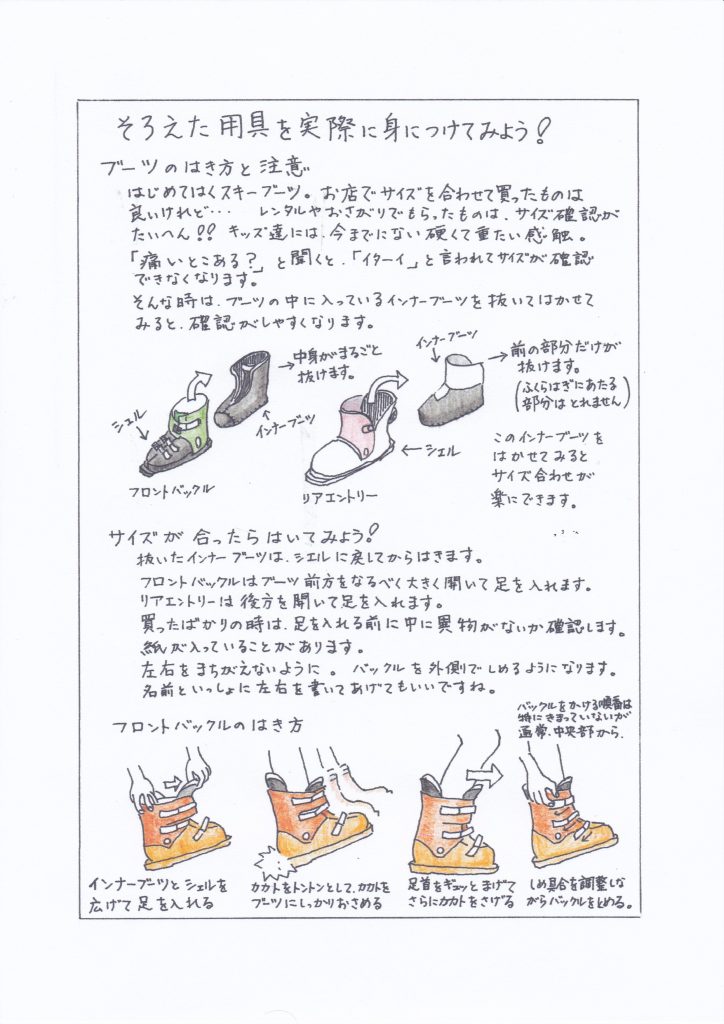 そろえた用具を実際に身につけてみよう!
ブーツのはき方と注意
はじめてはくスキーブーツ。お店でサイズを合わせて買ったものは
良いけれど・・・ レンタルやおさがりでもらったものは、サイズ確認が
たいへん!! キッズ達には、今までにない硬くて重たい感触。
「痛いとこある?」と聞くと、「イターイ」と言われてサイズが確認
できなくなります。
そんな時は、ブーツの中に入っているインナーブーツを抜いてはかせて
みると、確認がしやすくなります。
シェル
→中身がまるごと
抜けます。
インナーブーツ
フロントバックル
インナーブーツ
→前の部分だけが
抜けます。
(ふくらはぎにあたる
部分はとれません)
←シェル
リアエントリー
このインナーブーツを
はかせてみると
サイズ合わせが
楽にできます。
サイズが合ったらはいてみよう!
抜いたインナーブーツは、シェルに戻してからはきます。
フロントバックルはブーツ前方をなるべく大きく開いて足を入れます。
リアエントリーは後方を開いて足を入れます。
買ったばかりの時は、足を入れる前に中に異物がないか確認します。
紙が入っていることがあります。
左右をまちがえないように。 バックルを外側でしめるようになります。
名前といっしょに左右を書いてあげてもいいですね。
フロントバックルのはき方
バックルをかける順番は
特にきまっていないが
通常、中央部から。
インナーブーツとシェルを
広げて足を入れる
カカトをトントンとして、カカトを
ブーツにしっかりおさめる
足首をギュッとまげて
さらにカカトをさげる
しめ具合を調整しな
がらバックルをとめる。